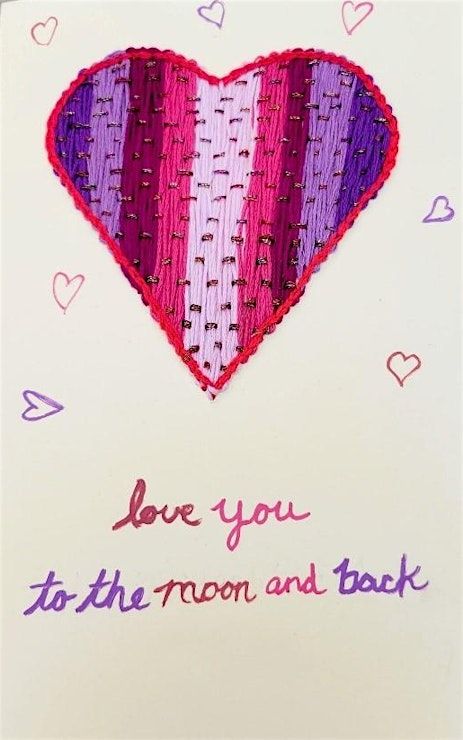 love you
to the moon and back